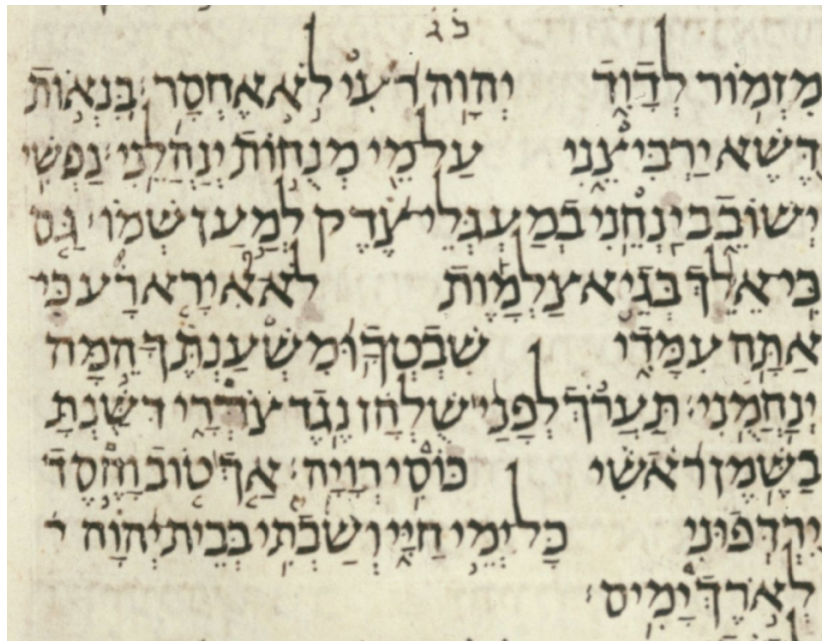 כג
מִזְמוֹר לְדָוִד יְהוָה רֹעִי לֹא אֶחְסָר׃ בִּנְאוֹת
דֶּשֶׁא יַרְבִּיצֵנִי עַל־מֵי מְנֻחוֹת יְנַהֲלֵנִי׃ נַפְשִׁי
יְשׁוֹבֵב יַנְחֵנִי בְמַעְגְּלֵי־צֶדֶק לְמַעַן שְׁמוֹ׃ גַּם
כִּי־אֵלֵךְ בְּגֵיא צַלְמָוֶת לֹא־אִירָא רָע כִּי־
אַתָּה עִמָּדִי שִׁבְטְךָ וּמִשְׁעַנְתֶּךָ הֵמָּה
יְנַחֲמֻנִי׃ תַּעֲרֹךְ לְפָנַי ׀ שֻׁלְחָן נֶגֶד צֹרְרָי דִּשַּׁנְתָּ
בַשֶּׁמֶן רֹאשִׁי כּוֹסִי רְוָיָה׃ אַךְ טוֹב וָחֶסֶד
יִרְדְּפוּנִי כָּל־יְמֵי חַיָּי וְשַׁבְתִּי בְּבֵית־יְהוָה
לְאֹרֶךְ יָמִים׃